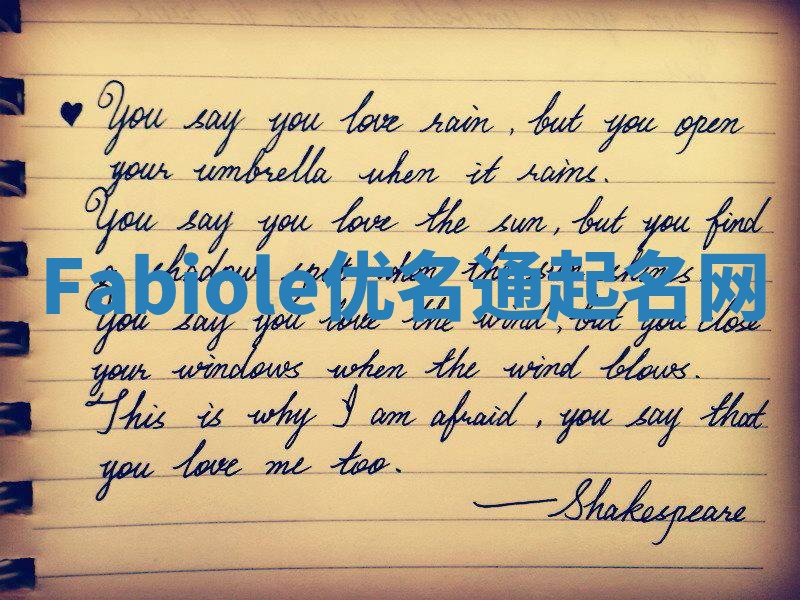 ♥ You say you love rain, but you open
your umbrella when it rains.
You say you love the sun, but you find
a shadow spot when the sun shines
Fabiole优名通起名网
You say you love the wind, but you close
your windows when the wind blows.
This is why I am afraid, you say that
you love me too.
—Shakespeare